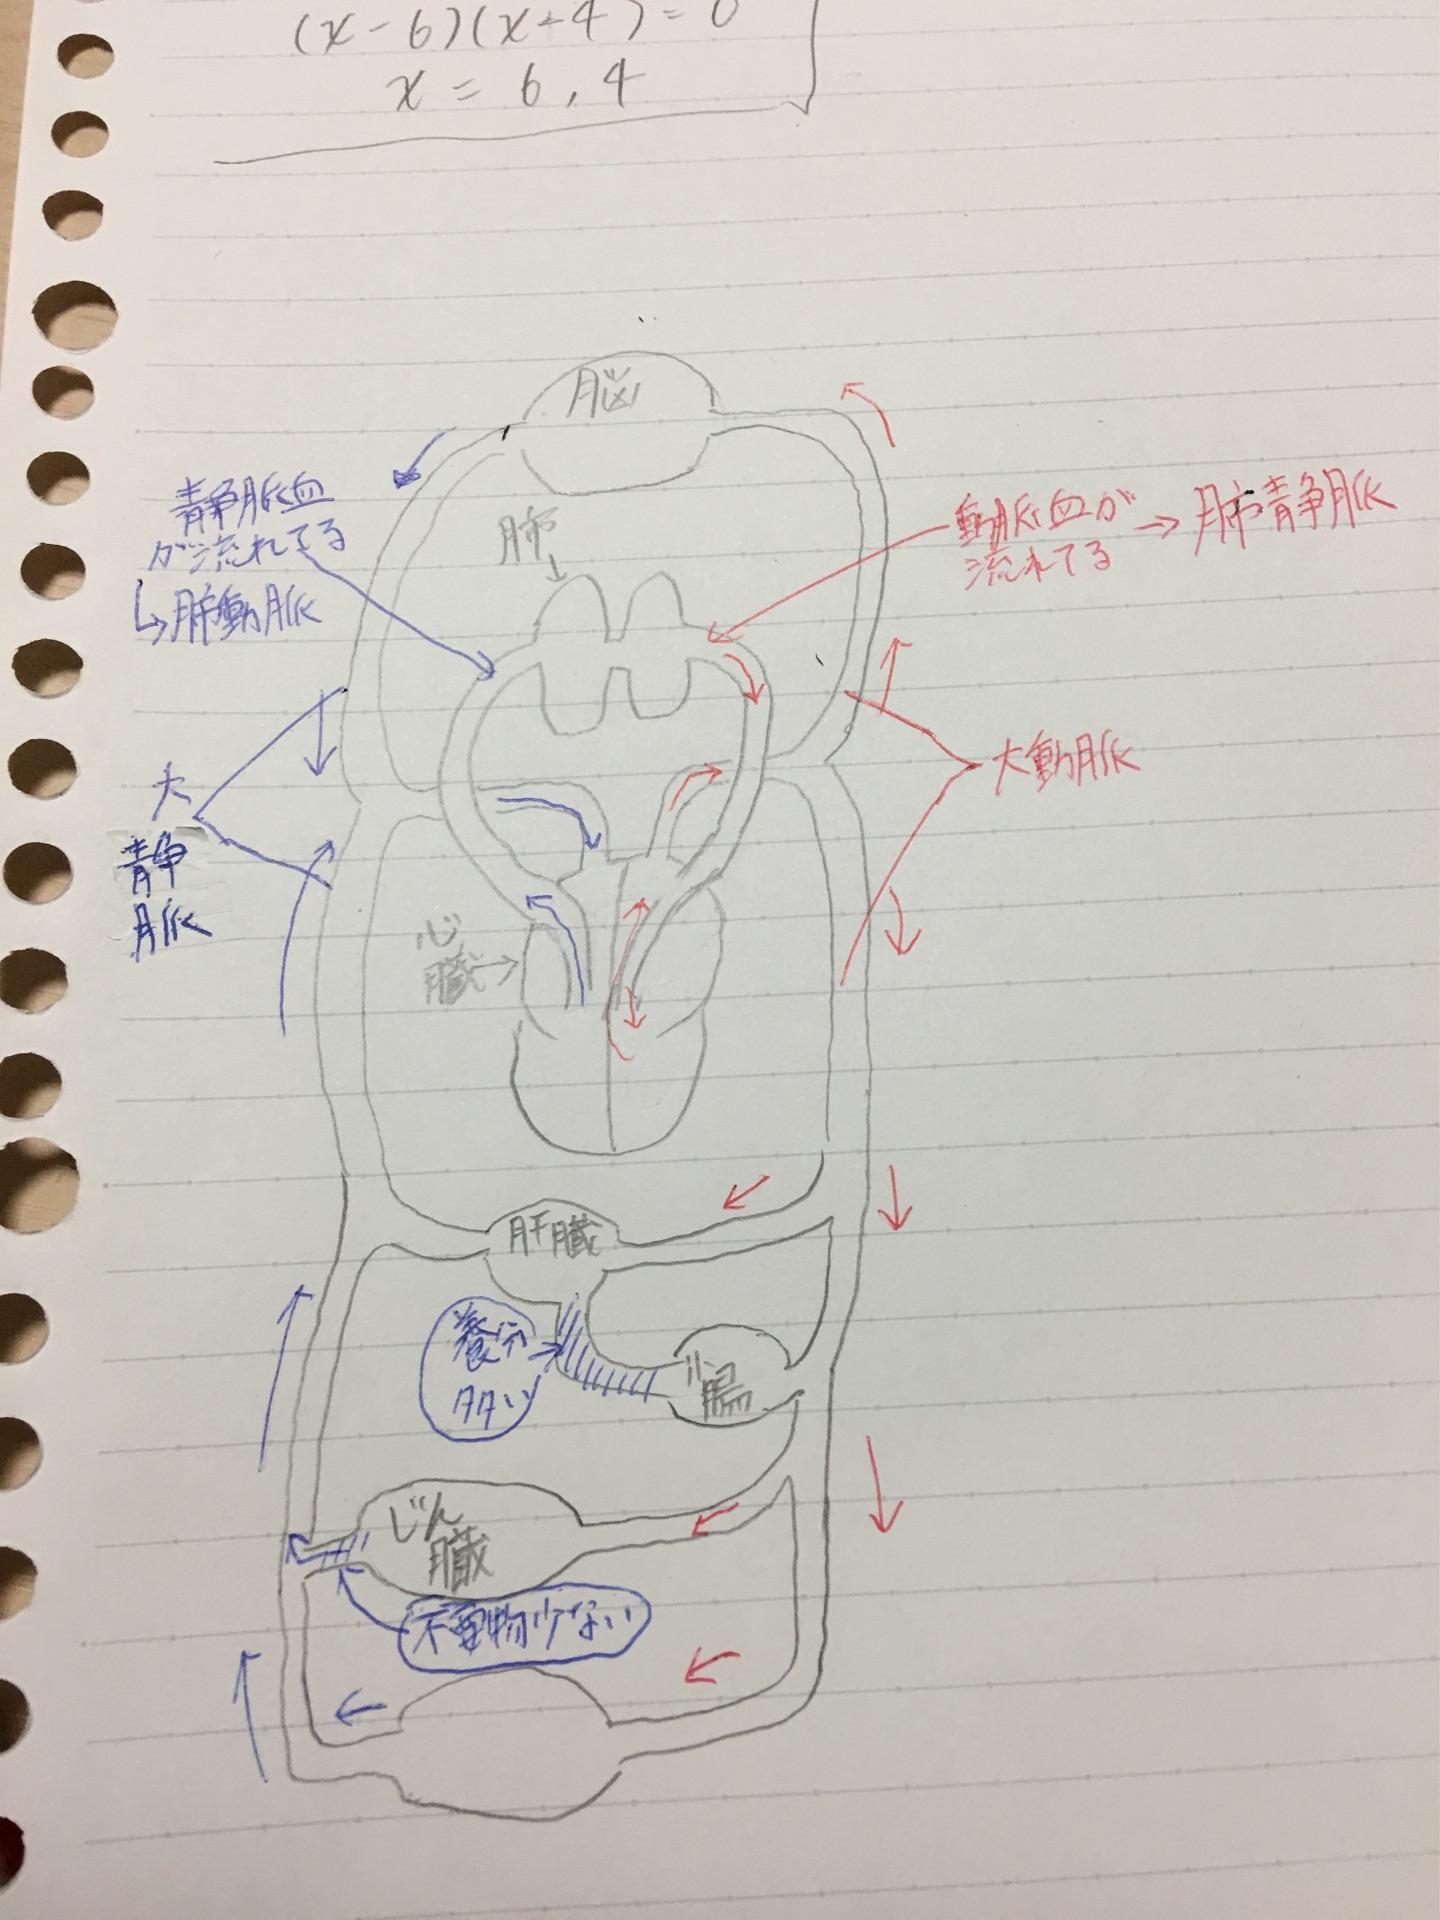 (x-6)(x+4)=0
x = 6, 4
脳
静脈血
が流れてる
↳肺動脈
肺
動脈血が
流れてる
→ 肺静脈
大
静
脈
大動脈
心
臓→
肝臓
養分
多い
小腸
じん
臓
不要物少ない